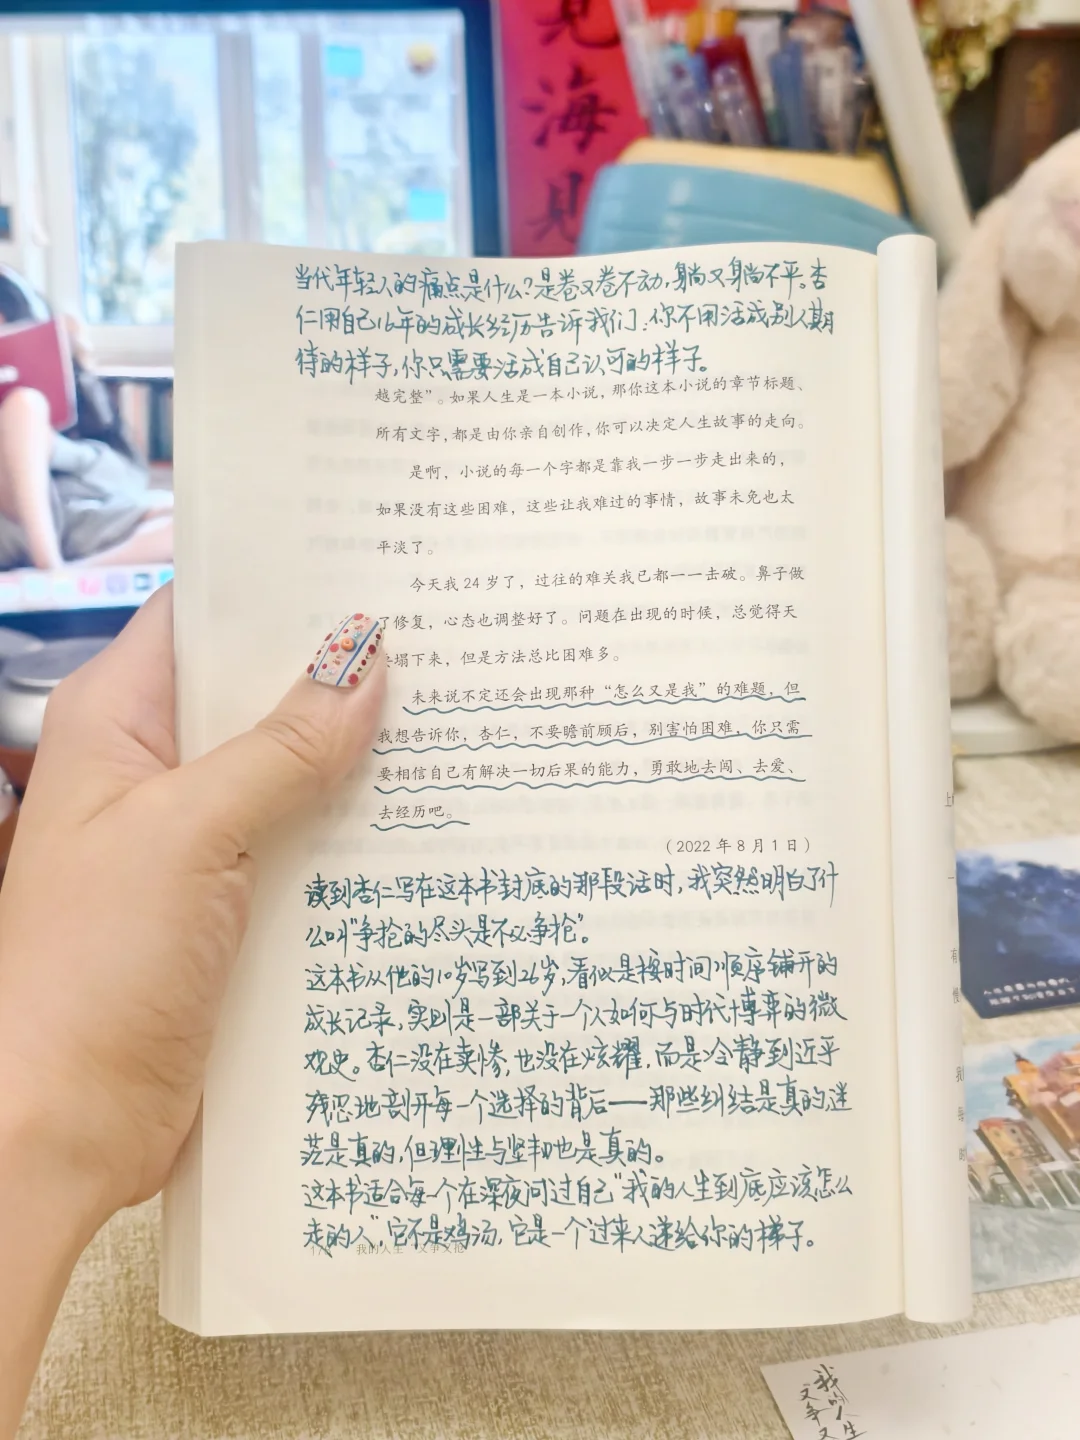 见
海
见
当代年轻人的痛点是什么?是卷又卷不动,躺又躺不平。杏
仁用自己16年的成长经历告诉我们:你不用活成别人期
待的样子,你只需要活成自己认可的样子。
越完整”。如果人生是一本小说,那你这本小说的章节标题、
所有文字,都是由你亲自创作,你可以决定人生故事的走向。
是啊,小说的每一个字都是靠我一步一步走出来的,
如果没有这些困难,这些让我难过的事情,故事未免也太
平淡了。
今天我24岁了,过往的难关我已都一一击破。鼻子做
了修复,心态也调整好了。问题在出现的时候,总觉得天
塌下来,但是方法总比困难多。
未来说不定还会出现那种“怎么又是我”的难题,但
我想告诉你,杏仁,不要瞻前顾后,别害怕困难,你只需
要相信自己有解决一切后果的能力,勇敢地去闯、去爱、
去经历吧。
(2022年8月1日)
读到杏仁写在这本书封底的那段话时,我突然明白了什
么叫“争抢的尽头是不必争抢”。
这本书从他的10岁写到26岁,看似是按时间顺序铺开的
成长记录,实则是一部关于一个人如何与时代博弈的微
观史。杏仁没在卖惨,也没在炫耀,而是冷静到近乎
残忍地剖开每一个选择的背后——那些纠结是真的,迷
茫是真的,但理性与坚韧也是真的。
这本书适合每一个在深夜问过自己“我的人生到底应该怎么
走的人”,它不是鸡汤,它是一个过来人递给你的梯子。
我的人生 又争又抢
我的人生
又争又